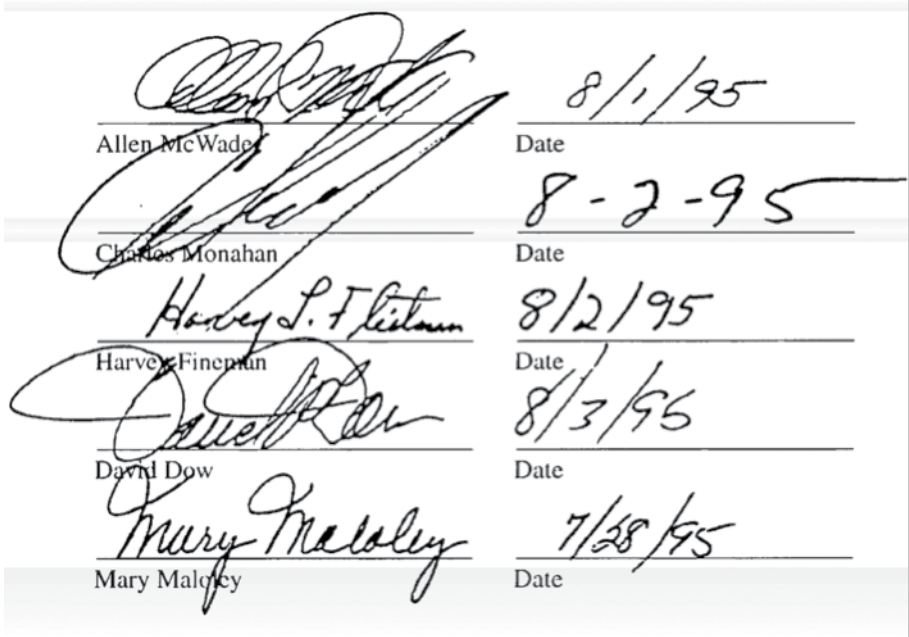 8/1/95
Allen McWade Date
8-2-95
Charles Monahan Date
Harvey L. 8/2/95
Harvey Fineman Date
8/3/95
David Dow Date
Mary Maloley 7/28/95
Mary Maloley Date